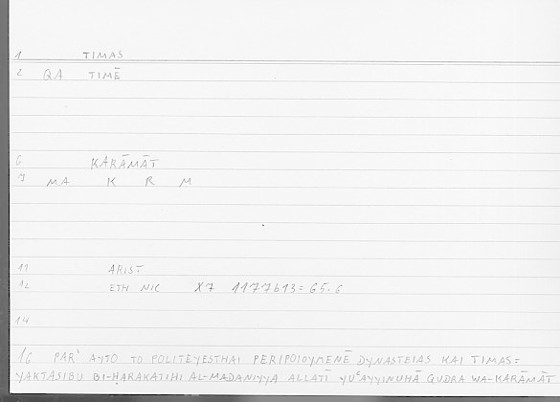 1 TIMAS
2 QA TIMĒ
6 KARĀMĀT
7 MA K R M
11 ARIST
12 ETH NIC X7 1177b13 = 65.6
14
16 PAR' AYTO TO POLITEYESTHAI PERIPOIOYMENĒ DYNASTEIAS KAI TIMAS =
YAKTASIBU BI-ḤARAKATIHI AL-MADANIYYA ALLATĪ YUʿAYYINUHĀ QUDRA WA-KARĀMĀT